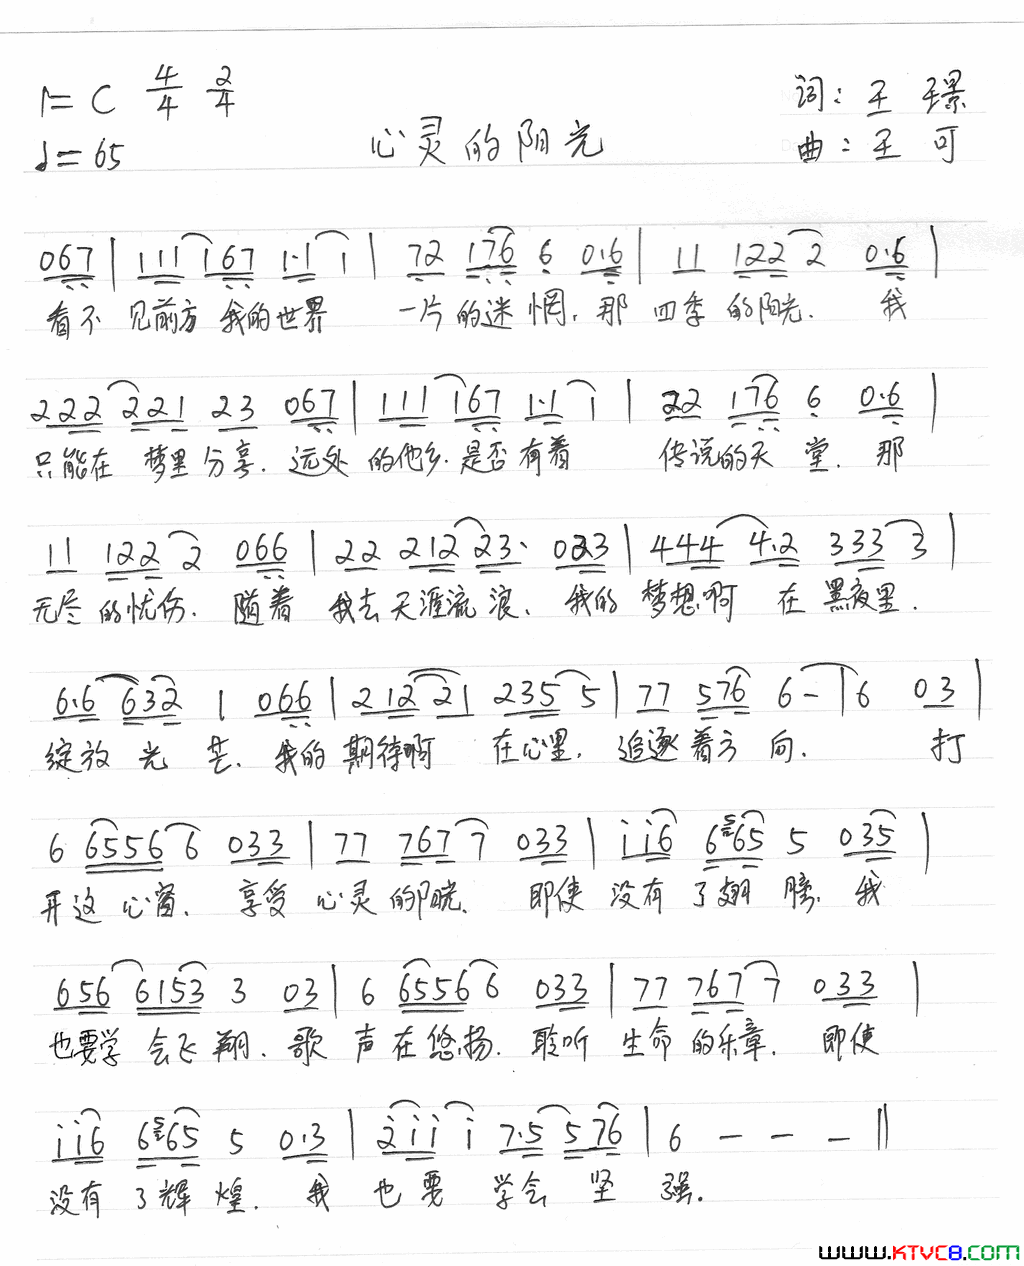 1=C 4/4 2/4 词：王璟
♩=65 心灵的阳光 曲：王可
067 | 111 167 1·1 1 | 72 176 6 0·6 | 11 122 2 0·6 |
看不 见前方 我的世界 一片的迷惘，那 四季的阳光. 我
222 221 23 067 | 111 167 1·1 1 | 22 176 6 0·6 |
只能在 梦里分享. 远处 的他乡. 是否有着 传说的天堂. 那
11 122 2 066 | 22 212 23· 023 | 444 4·2 333 3 |
无尽的忧伤. 随着 我去天涯流浪. 我的 梦想啊 在黑夜里.
6·6 632 1 066 | 212 21 235 5 | 77 576 6 – | 6 03 |
绽放光芒. 我的 期待啊 在心里. 追逐着方向. 打
6 6556 6 033 | 77 767 7 033 | i i6 6565 5 035 |
开这心窗. 享受 心灵的阳光. 即使 没有了翅膀. 我
656 6153 3 03 | 6 6556 6 033 | 77 767 7 033 |
也要学会飞翔. 歌声在悠扬. 聆听 生命的乐章. 即使
i i6 6565 5 0·3 | 2i i i 7·5 576 | 6 – – – ‖
没有了辉煌. 我 也要 学会坚强.
www.KTVC8.com